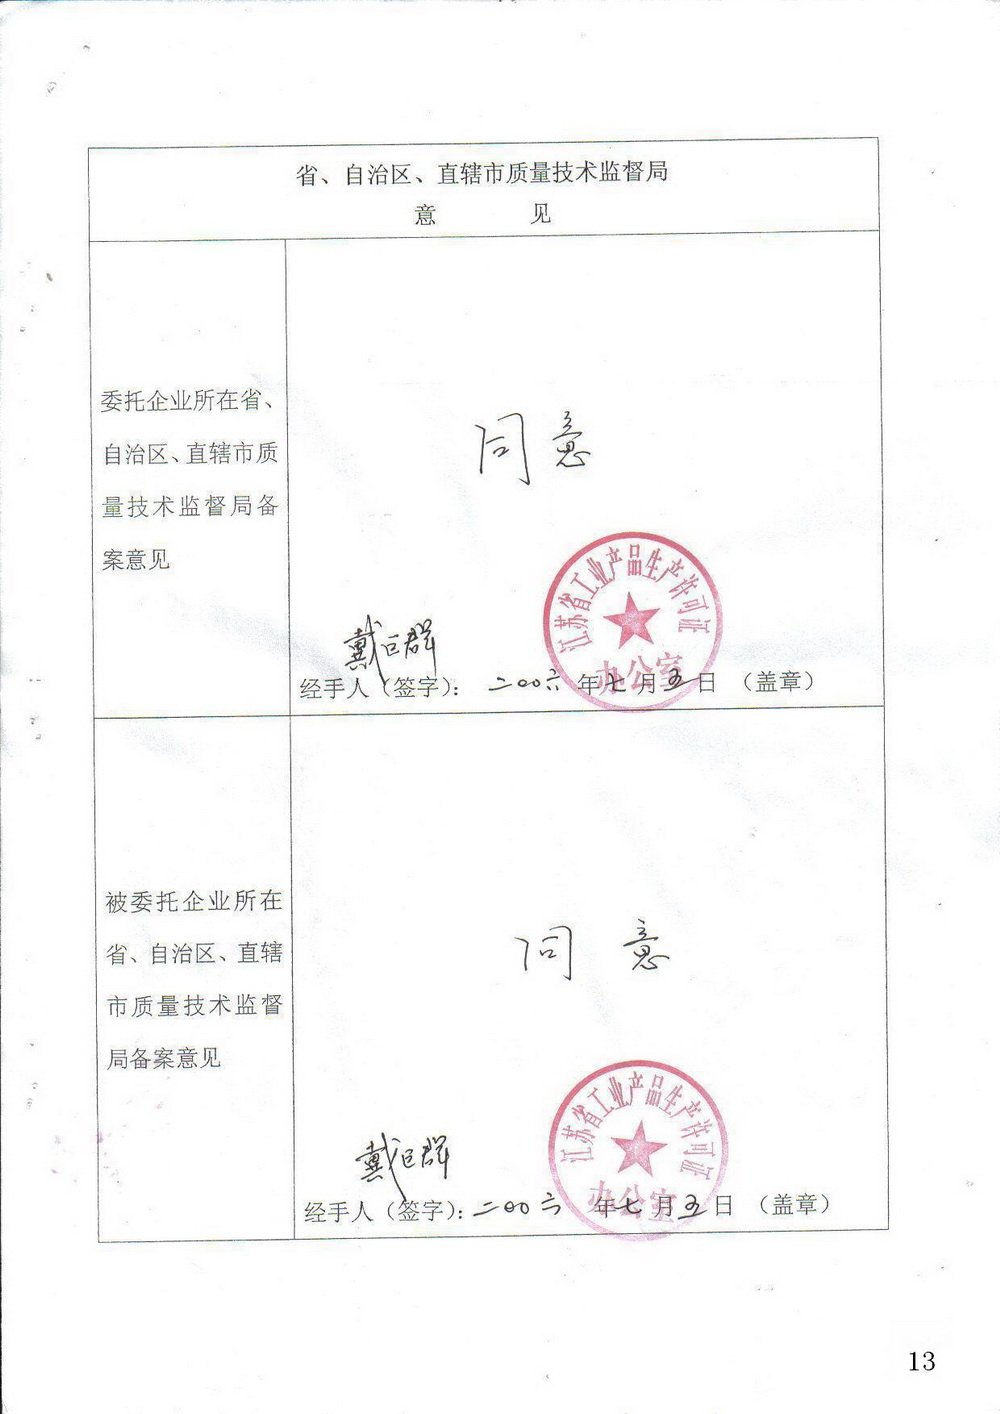 省、自治区、直辖市质量技术监督局
意 见
委托企业所在省、
自治区、直辖市质
量技术监督局备
案意见
同意
江苏省工业产品生产许可证
办公室
戴巨群
经手人（签字）： 二〇〇六 年七月五日 （盖章）
被委托企业所在
省、自治区、直辖
市质量技术监督
局备案意见
同 意
江苏省工业产品生产许可证
办公室
戴巨群
经手人（签字）：二〇〇六 年七月五日 （盖章）
13